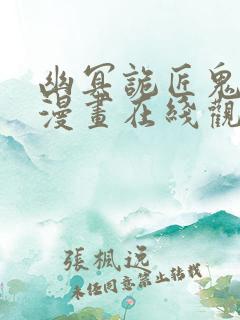 幽冥詭匠鬼
漫畫在綫觀
張楓逸
未经同意禁止转载